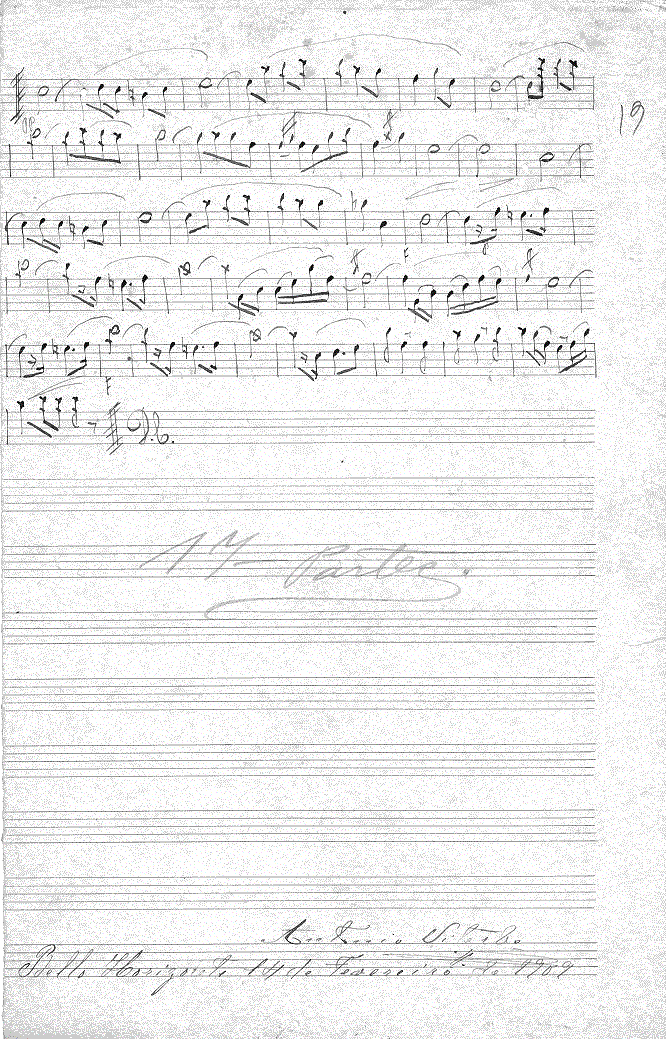 19
F
F
D.C.
17 Partes.
Antonio
Bello Horizonte 14 de Fevereiro de 1909